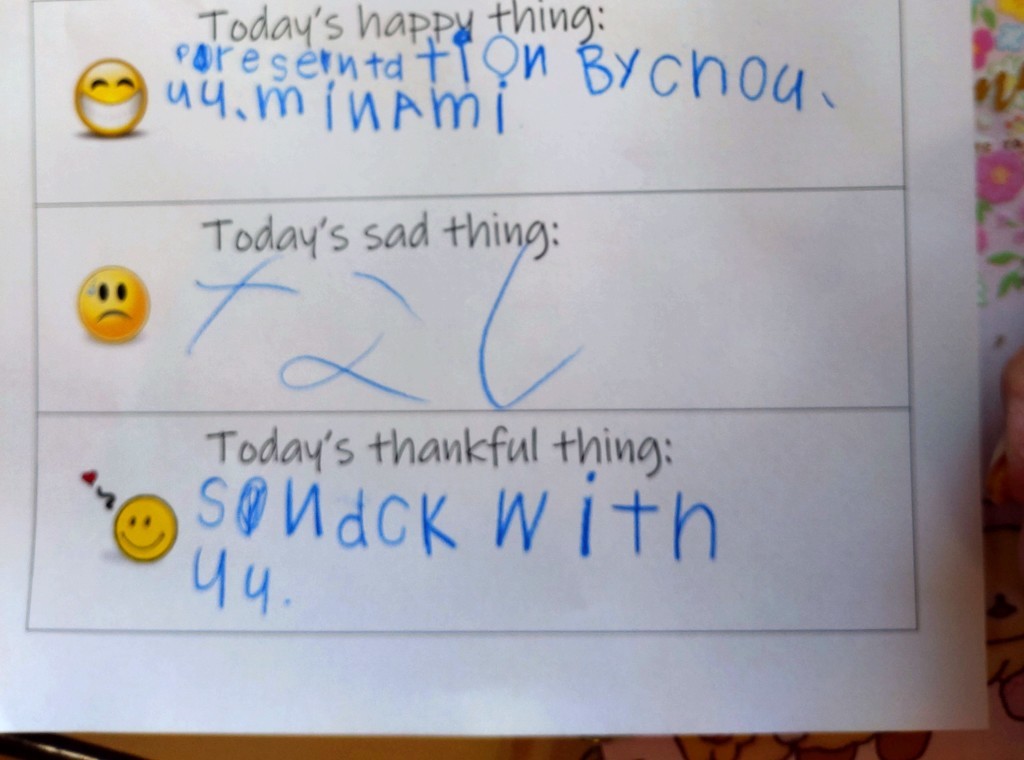 Today's happy thing:
presentation By chou.
yu. minAmi
Today's sad thing:
なし
Today's thankful thing:
snack with
yu.